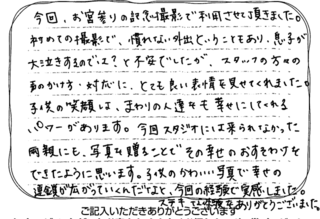 今回、お宮参りの記念撮影で利用させて頂きました。
初めての撮影で、慣れない外出ということもあり、息子が
大泣きするのでは…？と不安でしたが、スタッフの方々の
声のかけ方・対応に、とても良い表情を見せてくれました。
子供の笑顔は、まわりの人達をも幸せにしてくれる
パワーがあります。今回スタジオには来られなかった
両親にも、写真を贈ることでその幸せのおすそわけを
できたように思います。かわいい写真で幸せの
連鎖が広がっていくんだなと、今回の経験で実感しました。
ステキな体験をありがとうございました。
ご記入いただきありがとうございます